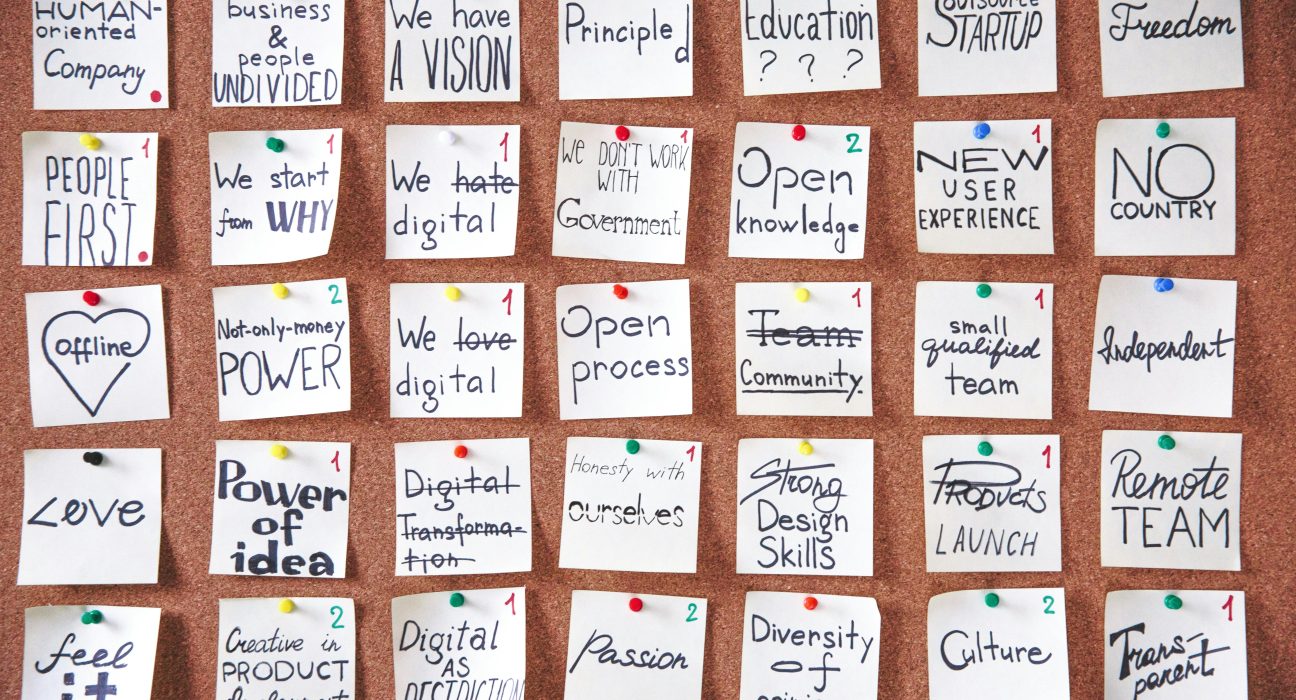 HUMAN-
oriented
Company
business
&
people
UNDIVIDED
We have
A VISION
Principle
d
Education
? ? ?
Outsource
STARTUP
Freedom
1
PEOPLE
FIRST
1
We start
from WHY
1
We hate
digital
1
We DON'T WORK
WITH
Government
2
Open
knowledge
1
NEW
USER
EXPERIENCE
NO
COUNTRY
offline
2
Not-only-money
POWER
1
We love
digital
Open
process
1
Team
Community
1
small
qualified
team
Independent
Love
1
Power
of
idea
Digital
Transforma-
tion
1
Honesty with
ourselves
Strong
Design
Skills
1
Products
LAUNCH
Remote
TEAM
feel
it
2
Creative in
PRODUCT
development
1
Digital
AS
2
Passion
Diversity
of
2
Culture
1
Trans-
parent